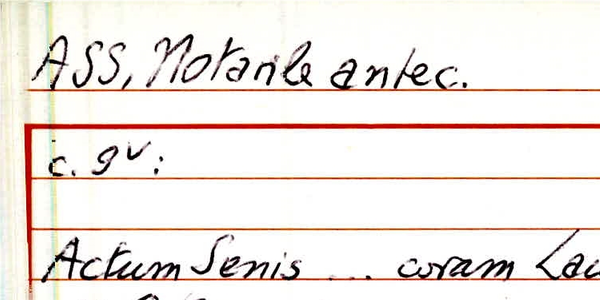 ASS, Notarile antec.
c. 9v:
Actum Senis ... coram